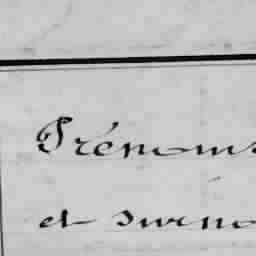 Prénoms
et surno